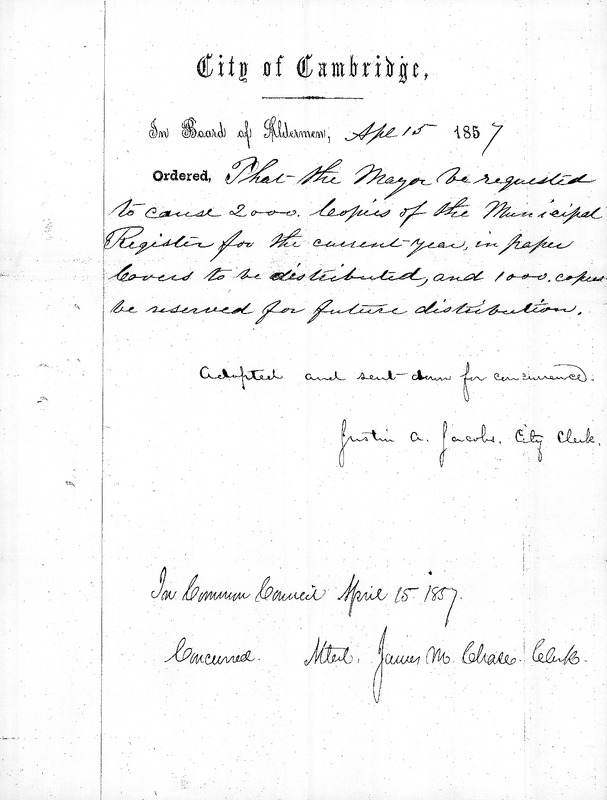 City of Cambridge,
In Board of Aldermen, Apl 15 1857
Ordered, That the Mayor be requested
to cause 2000. Copies of the Municipal
Register for the current year, in paper
Covers to be distributed, and 1000. copies
be reserved for future distribution.
Adopted and sent down for concurrence.
Justin A. Jacobs. City Clerk.
In Common Council April 15. 1857.
Concurred. Attest. James M. Chase. Clerk.